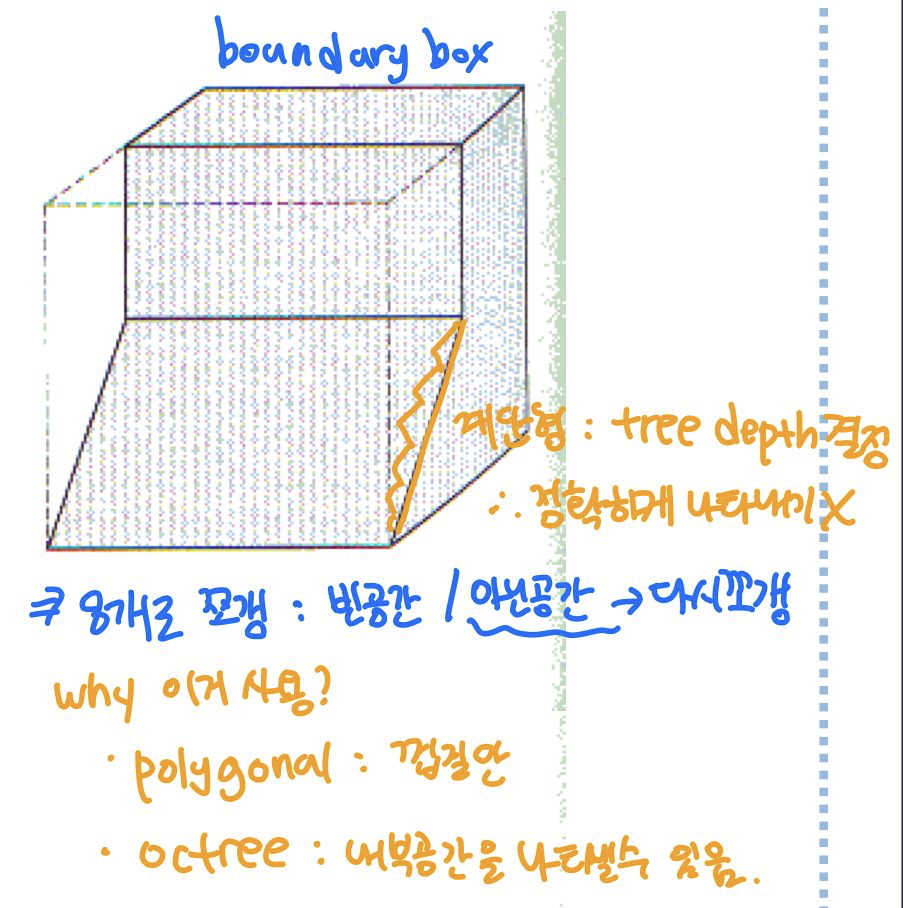 boundary box
계단형 : tree depth 결정
∴ 정확하게 나타내기 X
⇒ 8개로 쪼갬 : 빈공간 / 아닌공간 → 다시쪼갬
why 이거 사용?
· polygonal : 껍질만
· octree : 내부공간을 나타낼수 있음.